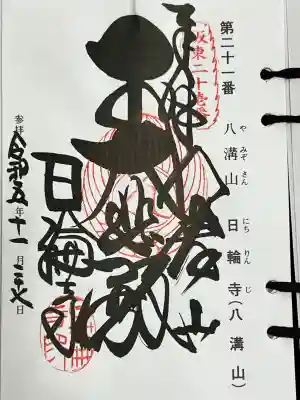 第二十一番 八溝山 日輪寺(八溝山)
や みぞ さん にち りん じ
坂東二十壱番
奉拝 八溝山
大悲殿
日輪寺
参拝 令和五年十一月二十七日